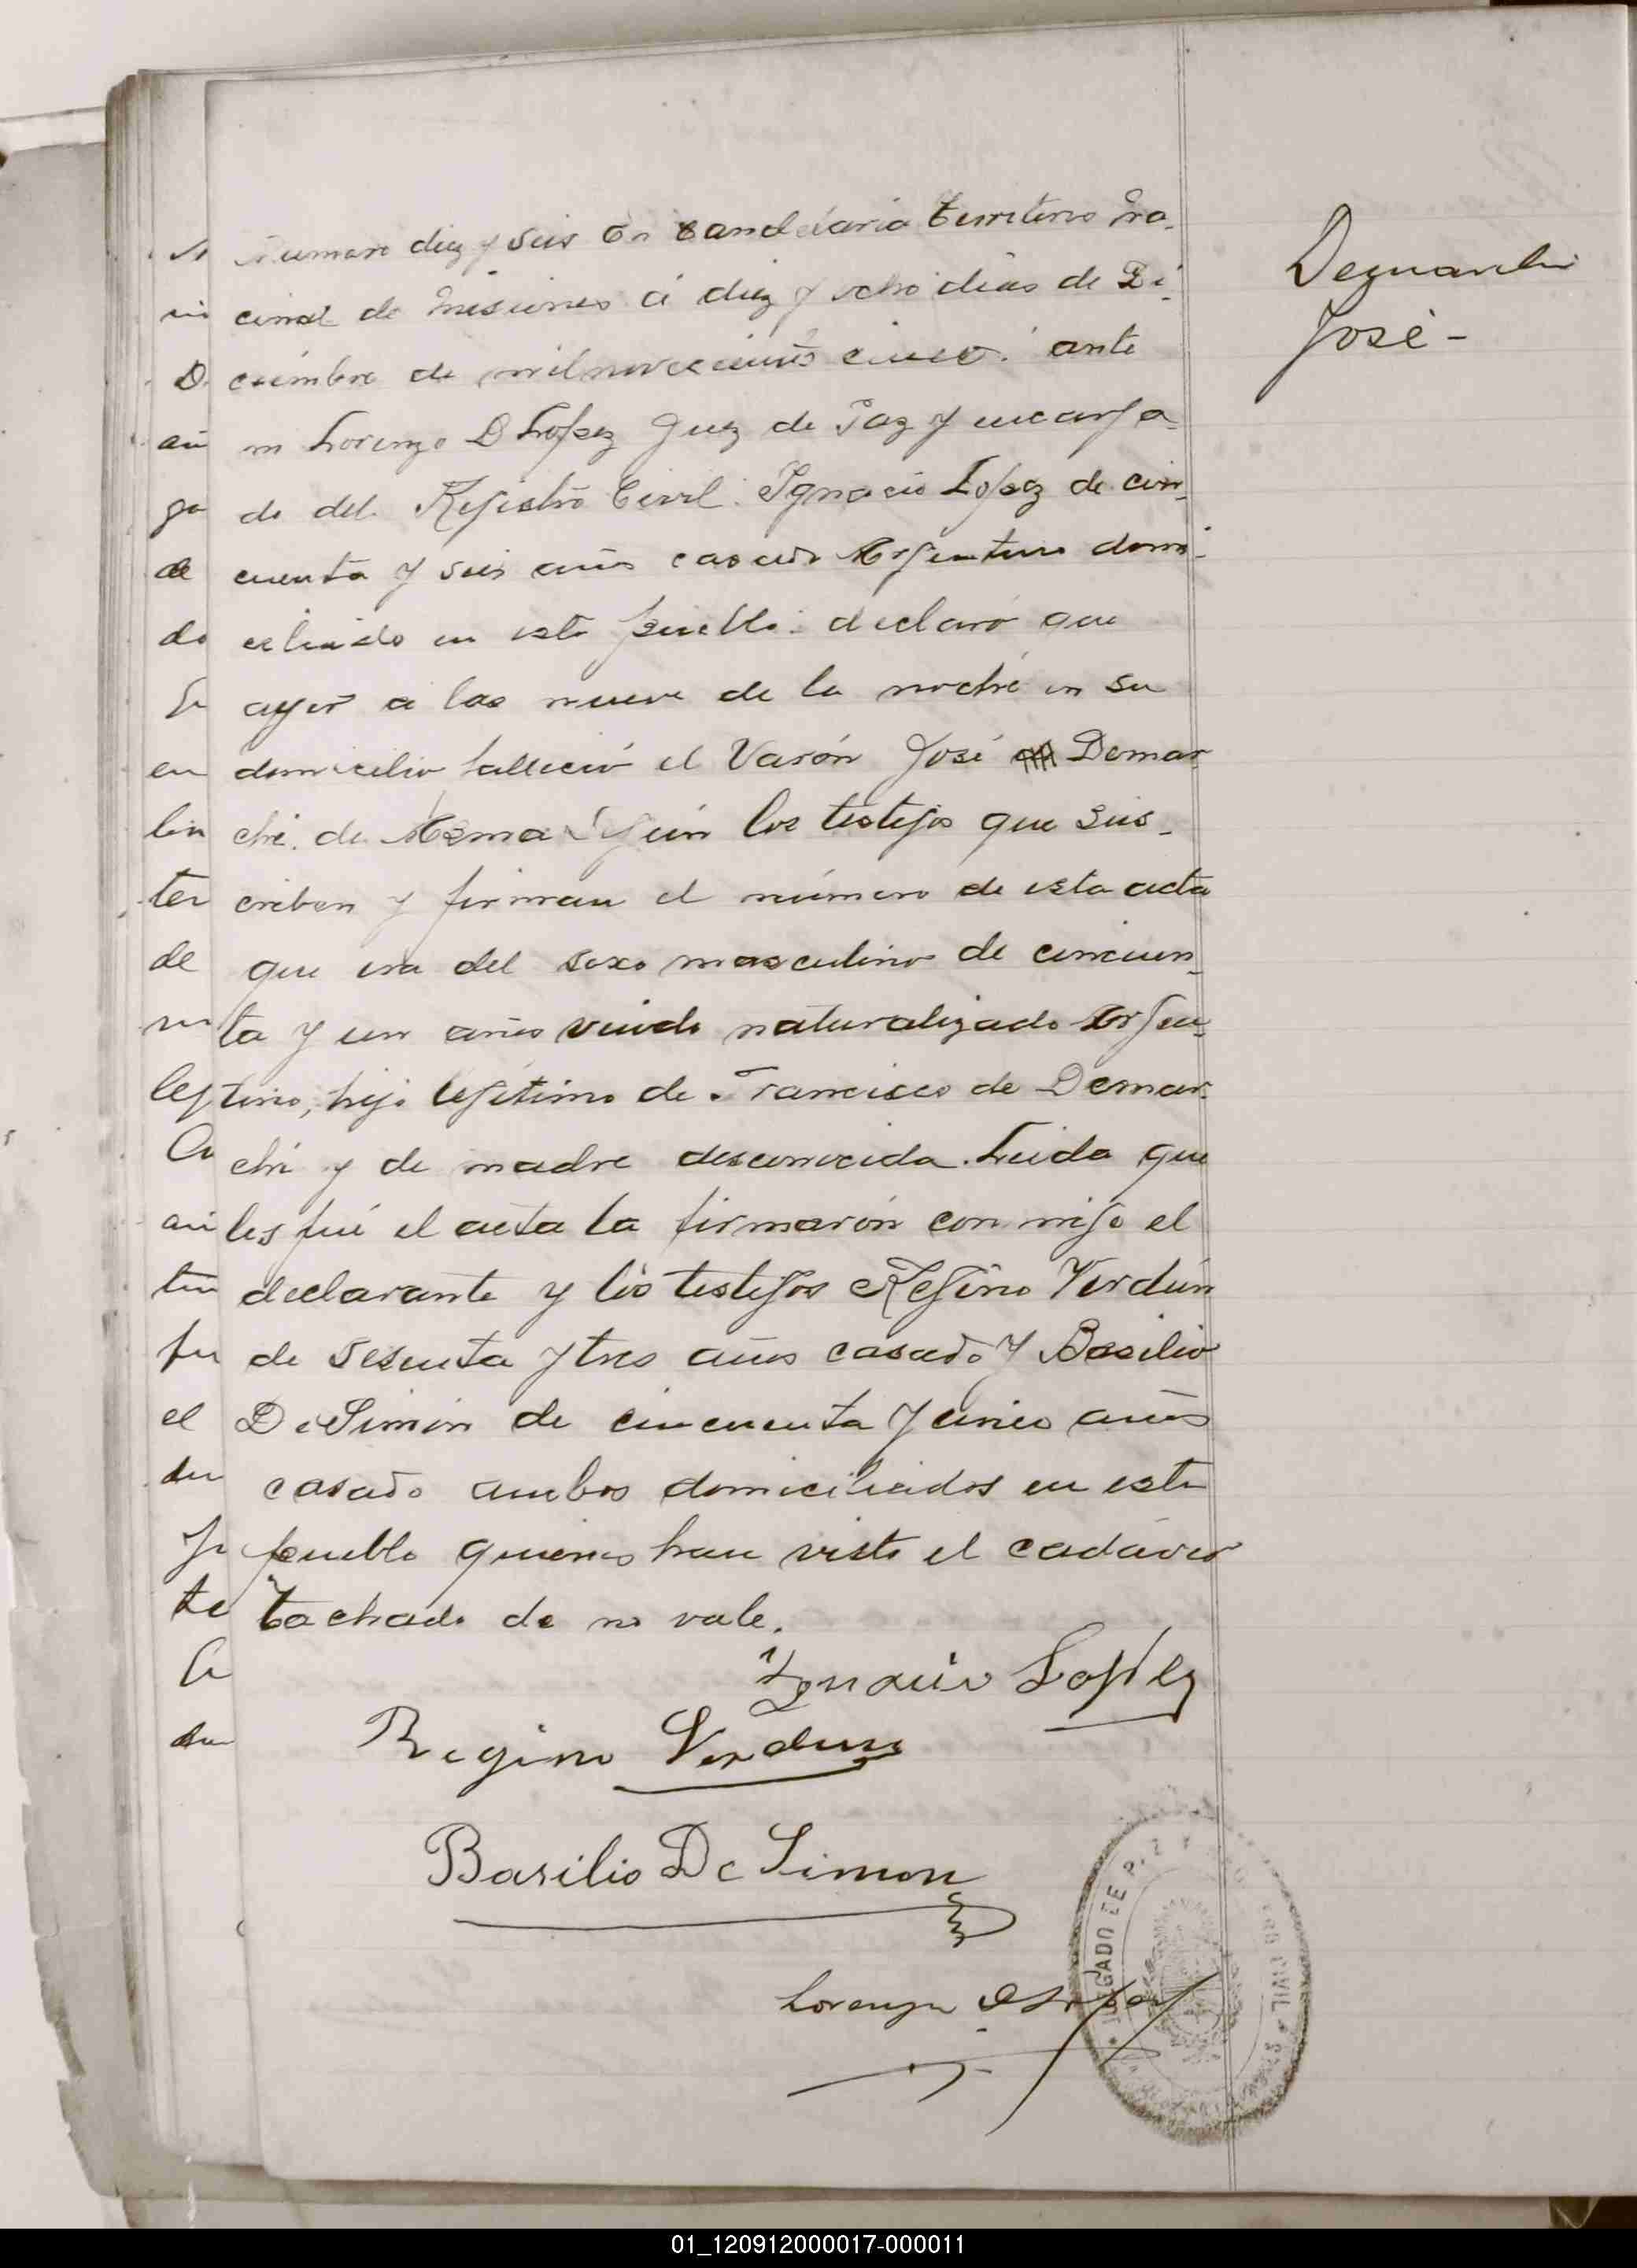 Demarchi
José -
Numero diez y seis En Candelaria Territorio Na-
cional de Misiones á diez y ocho dias de Di-
ciembre de mil novecientos cinco: ante
mi Lorenzo D Lopez Juez de Paz y encarga-
do del Rejistro Civil: Ignacio Lopez de cin-
cuenta y seis años casado Arjentino domi-
ciliado en este pueblo: declaró que
ayer a las nueve de la noche en su
domicilio falleció el Varón José Demar-
chi. de Asma segun los testijos que sus-
criben y firman el número de esta acta
que era del sexo masculino de cincuen-
ta y un años viudo naturalizado Arjen-
tino, hijo lejitimo de Francisco de Demar-
chi y de madre desconocida. Leida que
les fué el acta la firmarón con mijo el
declarante y los testijos Rejino Verdún
de sesenta y tres años casado y Basilio
De Simon de cincuenta y cinco años
casado ambos domiciliados en este
pueblo quienes han visto el cadáver
Tachado de no vale.
Ignacio Lopez
Regino Verdun
Basilio De Simon
Lorenzo D Lopez
JUZGADO DE P.Z Y
CIVIL
01_120912000017-000011